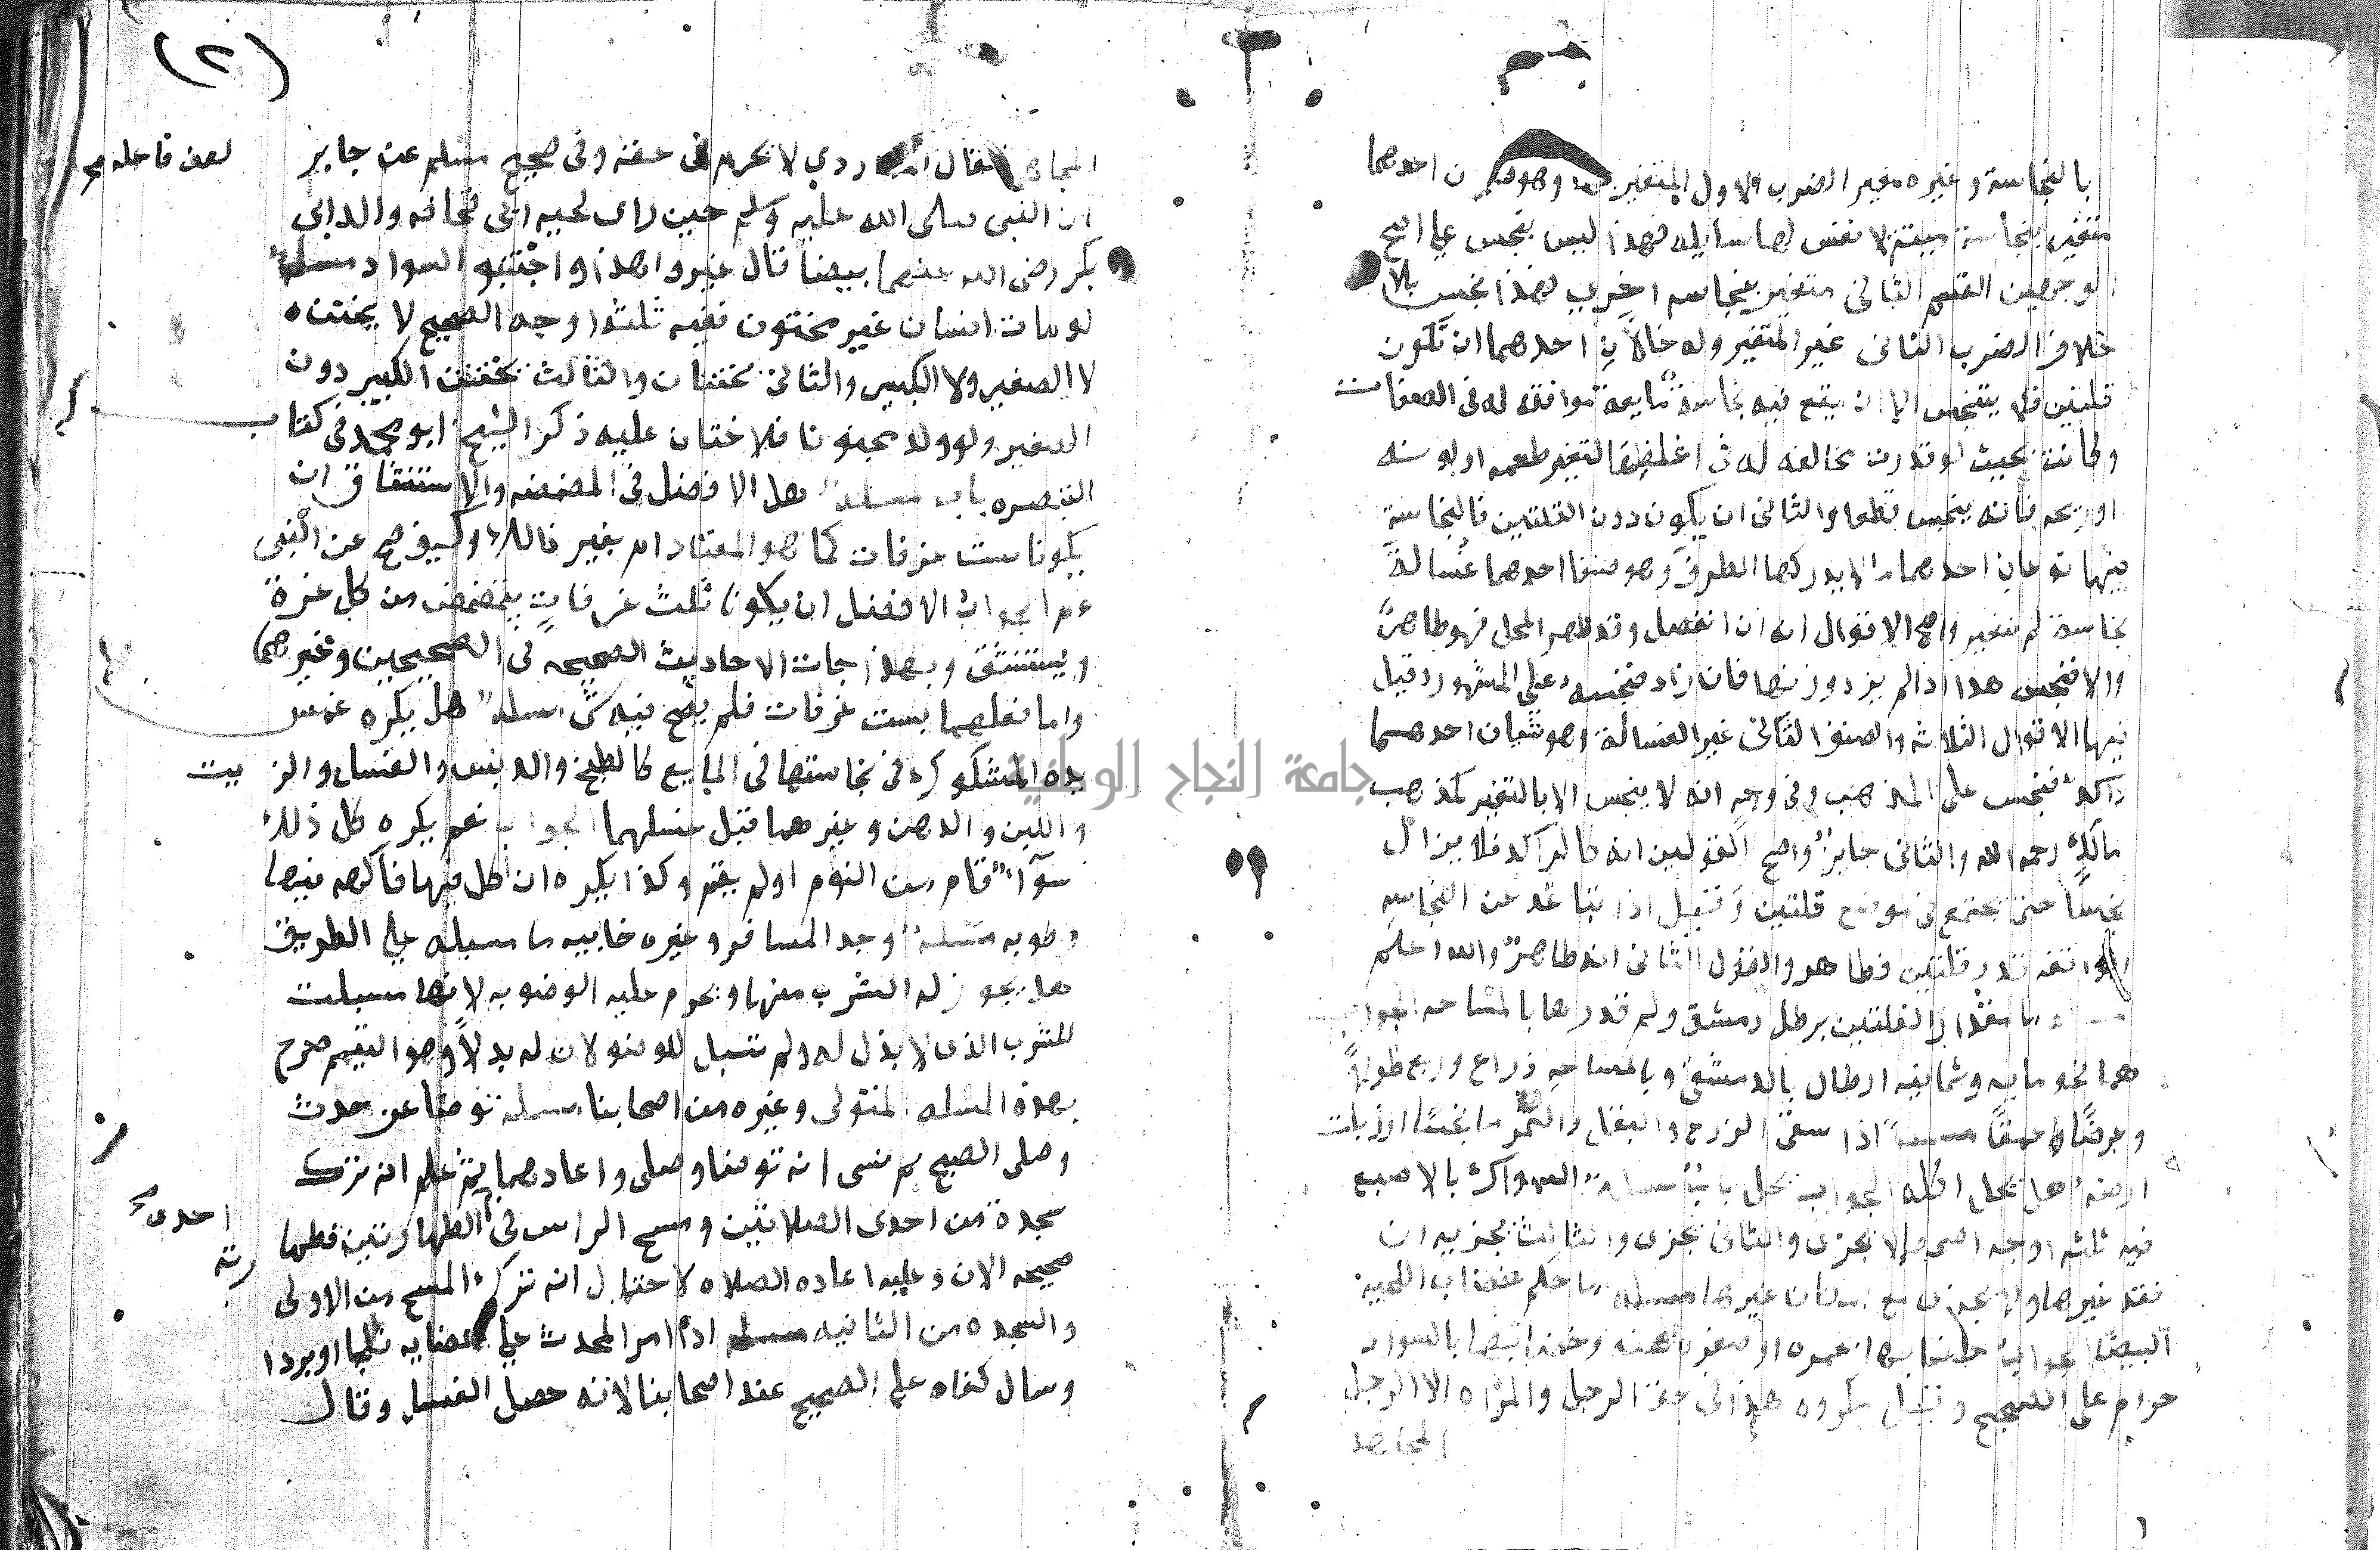 بالنجاسة وغيره متغير الضرب الاول المتغير وهو ن احدهما
متغير بنجاسة ميتة لا نفس لها سايله فهذا ليس بنجس علي اصح
الوجهين القسم الثانى متغير بنجاسه اخرى فهذا نجس بلا
خلاف الضرب الثانى غير المتغير وله حالان احدهما ان تكون
قلتين فلا ينجس الا ان يقع فيه نجاسة مايعة موافقه له فى الصفات
وكانت بحيث لو قدرت مخالفه له فى اغلظ لتغير طعمه او لونه
او ريحه فانه ينجس قطعا والثانى ان يكون دون القلتين فالنجاسة
فيها نوعان احدهما ما لا يدركها الطرف وهو صنفا احدهما غسالة
نجاسة لم تتغير واصح الاقوال انه ان انفصل وقد طهر المحل فهو طاهر
والا فنجس هذا اذا لم يزد وزنها فان زاد فنجسه على المشهور وقيل
فيها الاقوال الثلاثه والصنف الثانى غير الغسالة وهو شيان احدهما
راكد فنجس على المذهب وفى وجه انه لا ينجس الا بالتغير كمذهب
مالك رحمه الله والثانى جاير واصح القولين انه كالراكد فلا يزال
نجسا حتى يجتمع فى موضع قلتين وقيل اذا تباعد عن النجاسه
الواقفه قدر قلتين فطاهر والقول الثانى انه طاهر والله اعلم
ما مقدار القلتين برطل دمشق وكم قدرها بالمساحه الجواب
هو نحو مايه وثمانيه ارطال بالدمشقى وبالمساحه ذراع وربع طولا
وعرضا وعمقا مسله اذا سقى الزرع والبقل والثمر ما نجسا او زبلت
ارضه هل يحل اكله الجواب يحل باب مسله السواك بالاصبع
فيه ثلثه اوجه اصحها لا يجزى والثانى يجزى والثالث يجزيه ان
فقد غيرها ولا يجزى مع امكان غيرها مسله ما حكم خضاب اللحيه
البيضا الجواب خضابها بحمره او صفره سنه وخضابها بالسواد
حرام على الصحيح وقيل مكروه هذا فى حق الرجل والمراه الا الرجل
المجاهد
(٢)
المجاهد فقال الماوردي لا يحرم فى حقه وفى صحيح مسلم عن جابر
ان النبى صلى الله عليه وسلم حين راى لحيه ابى قحافه والد ابى
بكر رضى الله عنهما بيضا قال غيروا هذا واجتنبو السواد مسله
لو مات انسان غير مختون ففيه ثلثه اوجه الصحيح لا يختن
لا الصغير ولا الكبير والثانى يختنان والثالث يختن الكبير دون
الصغير ولو ولد مختونا فلا ختان عليه ذكر الشيخ ابو محمد فى كتاب
التبصره باب مسله هل الافضل فى المضمضه والاستنشاق ان
يكونا ست غرفات كما هو المعتاد ام بغير ذالك وكيف صح عن النبى
عم الجواب الافضل ان يكونا ثلث غرفات يتمضمض من كل غرفة
ويستنشق وبهذا جات الاحاديث الصحيحه فى الصحيحين وغيرهما
واما فعلهما بست غرفات فلم يصح فيه شى مسله هل يكره غمس
يده المشكوك فى نجاستها فى المايع كالطبخ والدبس والعسل والزيت
واللبن والدهن وغيرها قبل غسلهما الجواب نعم يكره كل ذلك
سوآ قام من النوم او لم يقم وكذا يكره ان اكل بها فاكهه فيها
رطوبه مسله وجد المسافر وغيره خابيه ما مسبله على الطريق
هل يجوز له الشرب منها ويحرم عليه الوضو به لانها مسبلت
للشرب الذى لا بدل له ولم تسبل للوضو لان له بدلا وهو التيمم صرح
بهذه المسله المتولى وغيره من اصحابنا مسله توضا عن حدث
وصلى الصبح ثم نسى انه توضا وصلى واعادهما ثم علم انه ترك
سجدة من احدى الصلاتين ومسح الراس فى الطهارتين فطها
صحيحه الان وعليه اعاده الصلاه لاحتمال انه ترك المسح من الاولى
والسجده من الثانيه مسله اذا امر المحدث على اعضايه ثلجا او بردا
وسال كفاه على الصحيح عند اصحابنا لانه حصل الغسل وقال
لعن فاعله صح
احدى
رته
جامعة النجاح الوطنية